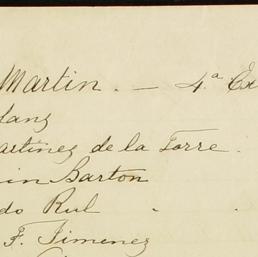 Martin. — 4.ª Ex
lanz
artinez de la Torre.
in Barton
do Rul " "
F. Jimenez